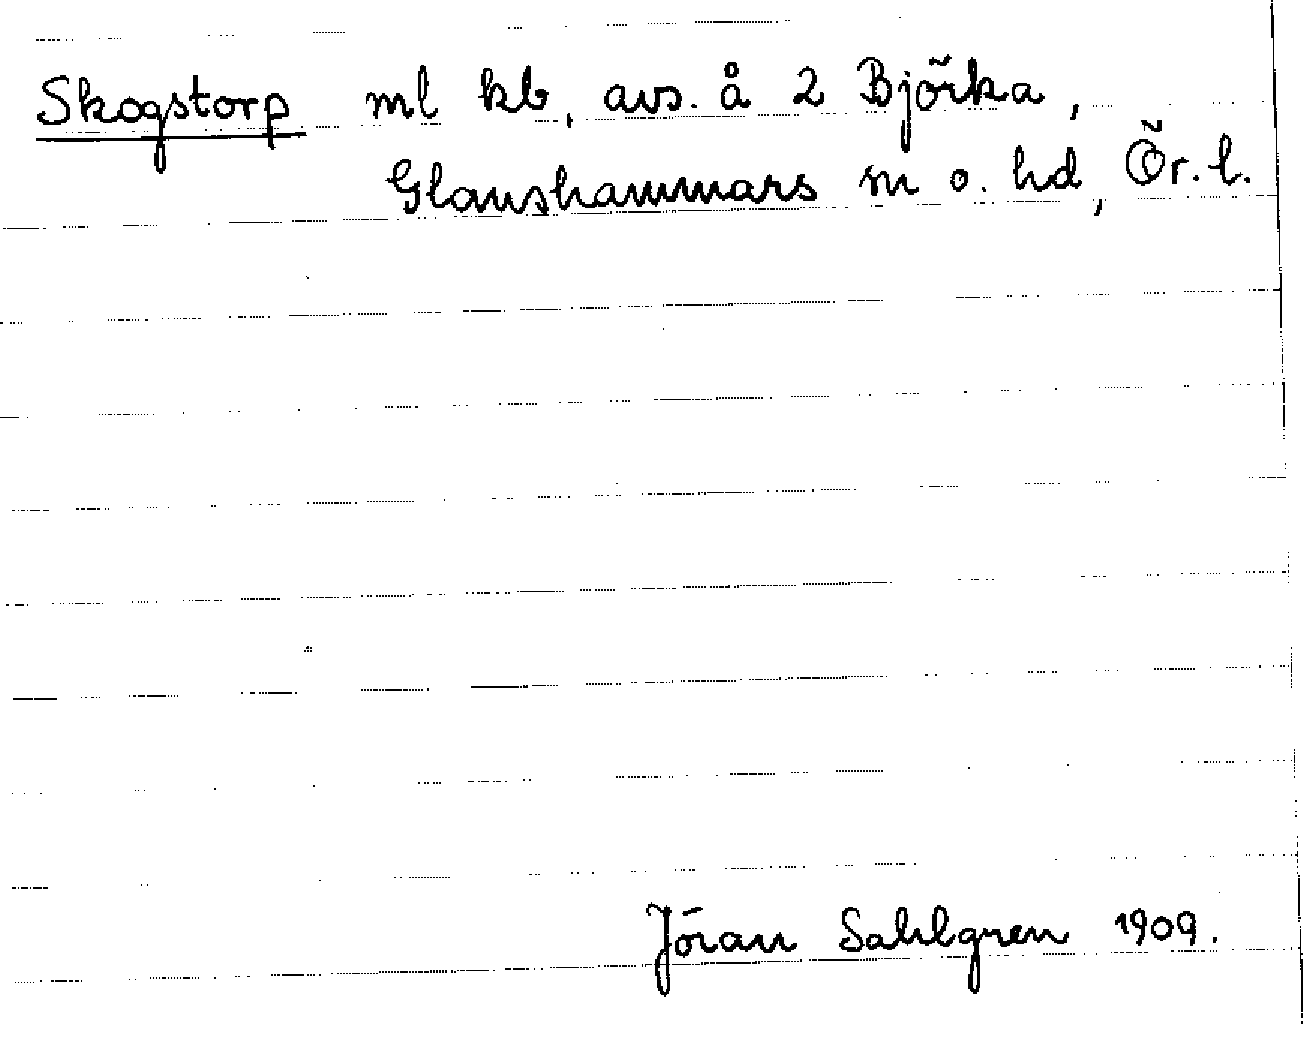 Skogstorp ml kb, avs. å 2 Björka,
Glanshammars sn o. hd, Ör. l.
Jöran Sahlgren 1909.